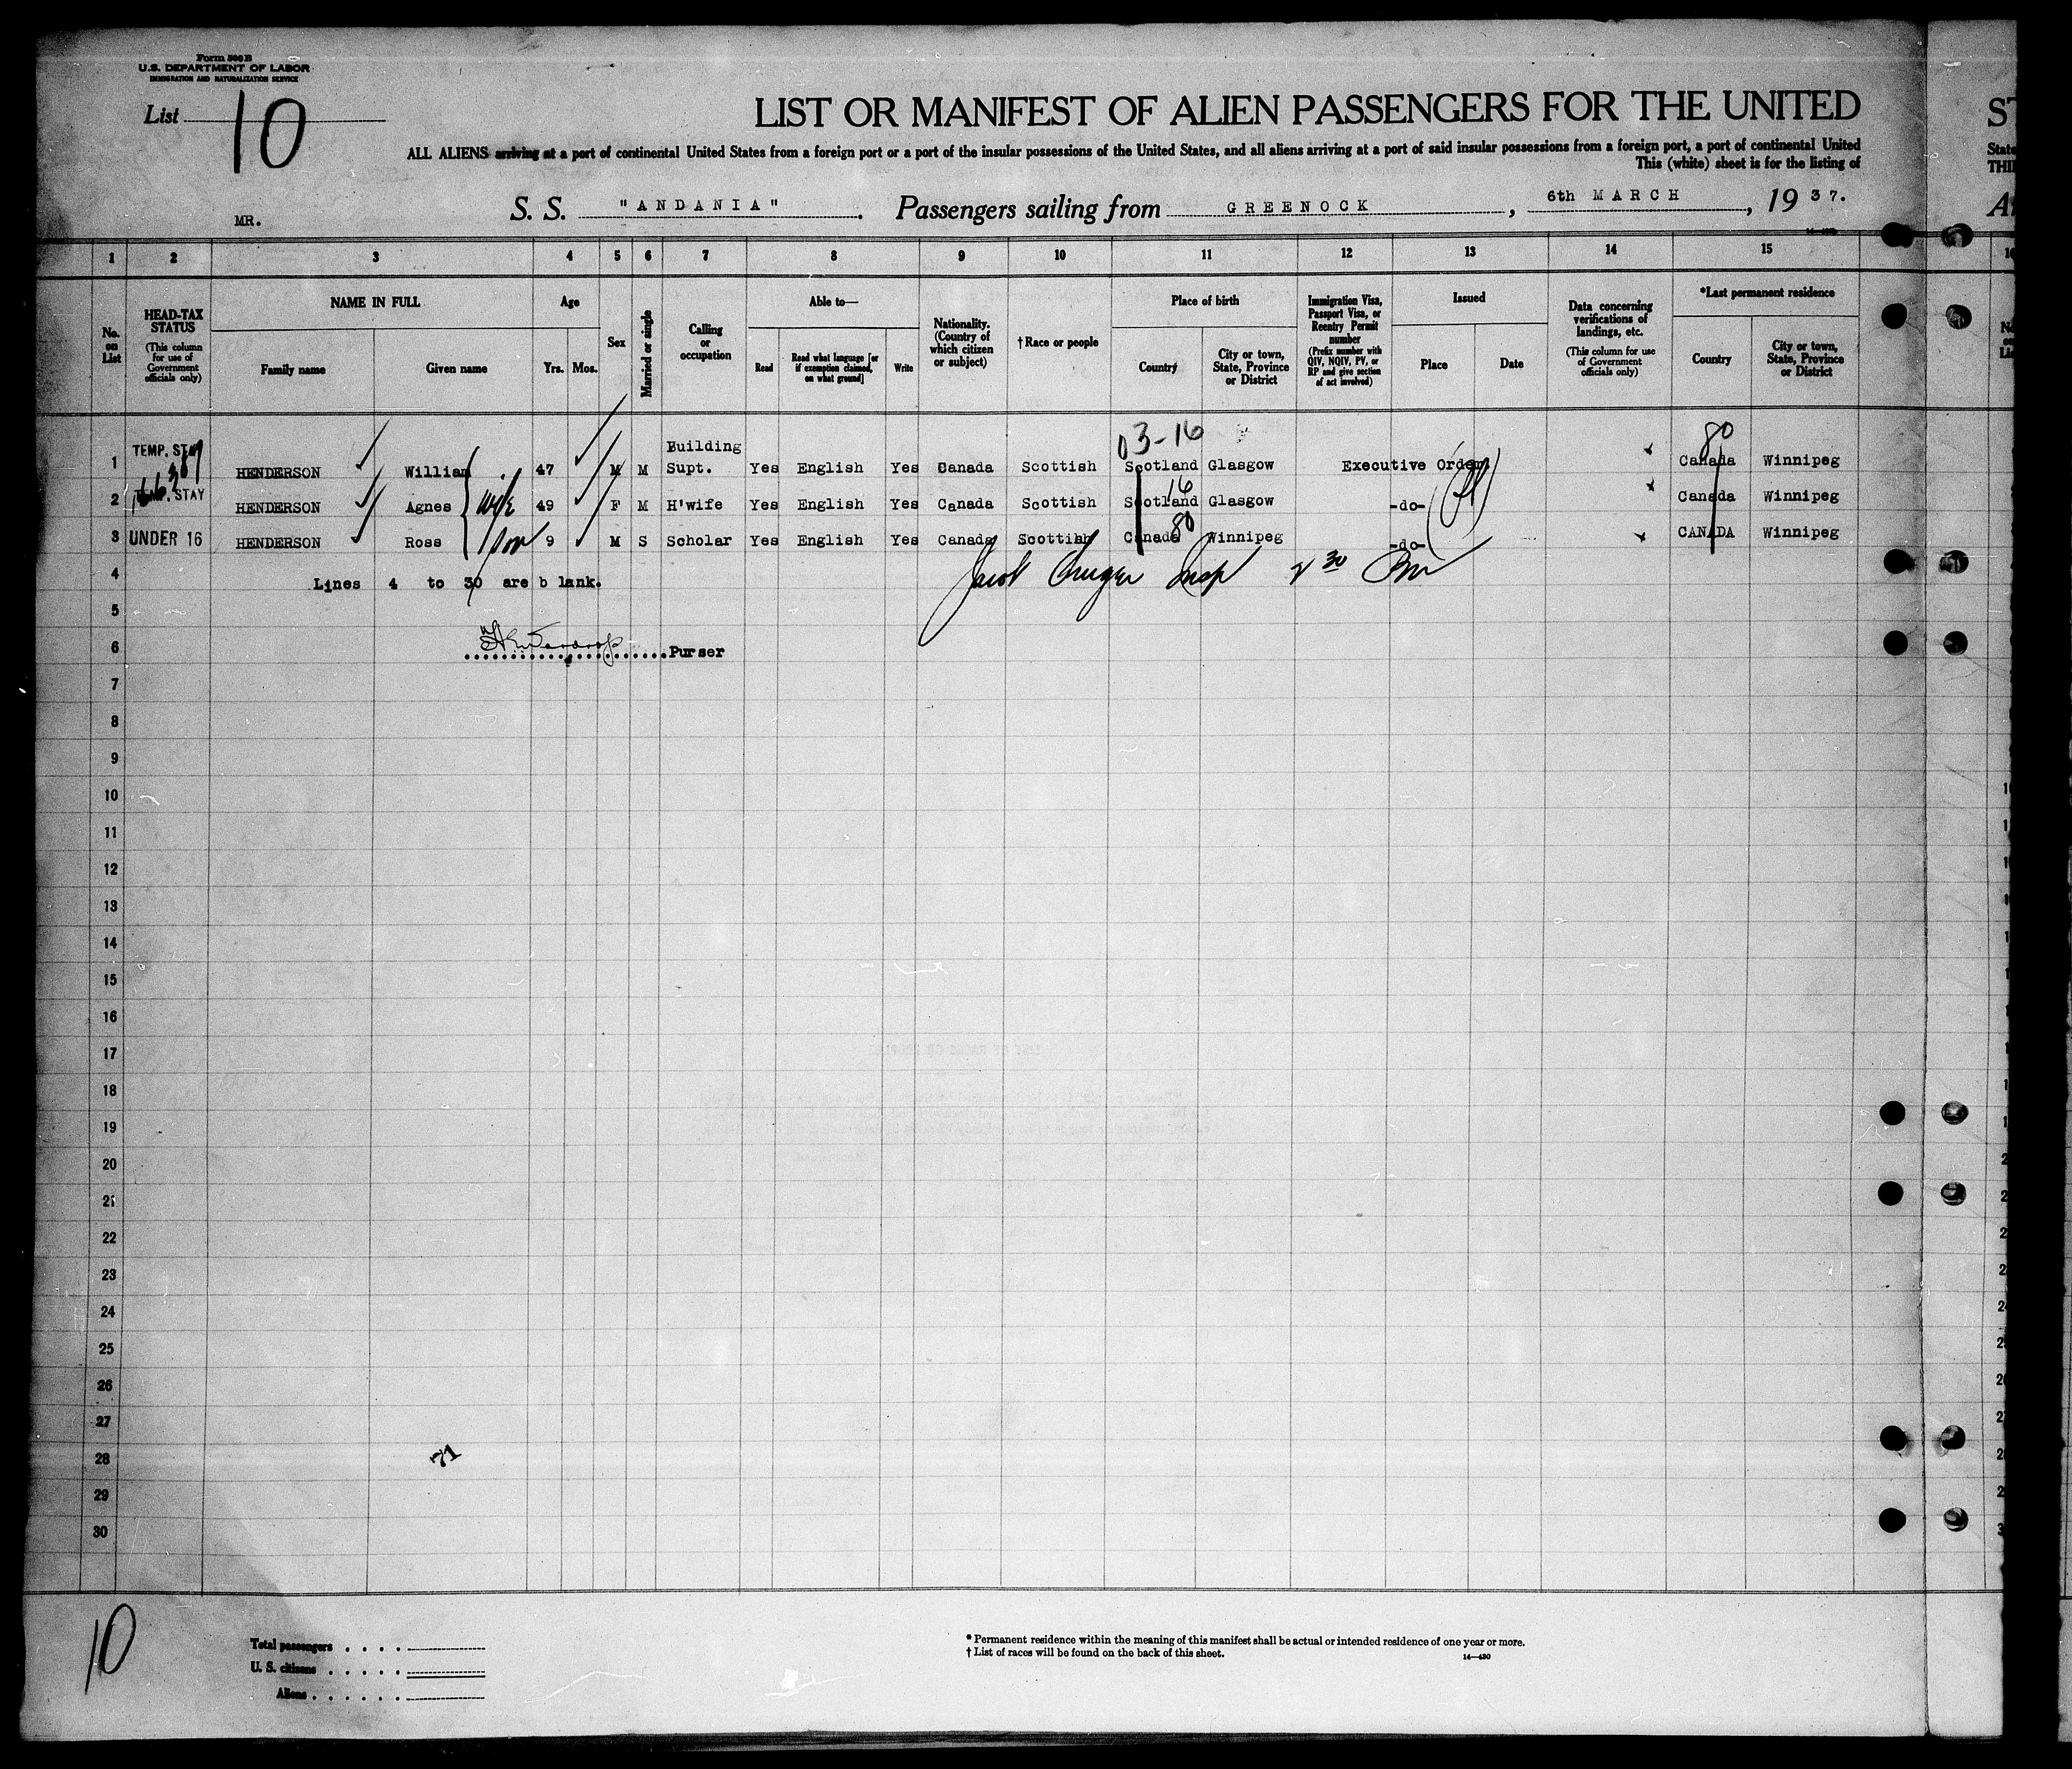 Form 500 B
U.S. DEPARTMENT OF LABOR
IMMIGRATION AND NATURALIZATION SERVICE
List 10
LIST OR MANIFEST OF ALIEN PASSENGERS FOR THE UNITED
ST
ALL ALIENS arriving at a port of continental United States from a foreign port or a port of the insular possessions of the United States, and all aliens arriving at a port of said insular possessions from a foreign port, a port of continental United
State
This (white) sheet is for the listing of
THI
MR.
S. S. "ANDANIA". Passengers sailing from GREENOCK, 6th MARCH, 1937.
1 2 3 4 5 6 7 8 9 10 11 12 13 14 15
No. on List
HEAD-TAX STATUS
(This column for use of Government officials only)
NAME IN FULL
Family name Given name
Age
Yrs. Mos.
Sex
Married or single
Calling or occupation
Able to—
Read
Read what language [or if exemption claimed, on what ground]
Write
Nationality. (Country of which citizen or subject)
† Race or people
Place of birth
Country
City or town, State, Province or District
Immigration Visa, Passport Visa, or Reentry Permit number
(Prefix number with QIV, NQIV, PV, or RP and give section of act involved)
Issued
Place Date
Data concerning verifications of landings, etc.
(This column for use of Government officials only)
*Last permanent residence
Country
City or town, State, Province or District
03-16 80
1 TEMP. STAY HENDERSON William 47 M M Building Supt. Yes English Yes Canada Scottish Scotland Glasgow Executive Order Canada Winnipeg
2 TEMP. STAY HENDERSON Agnes wife 49 F M H'wife Yes English Yes Canada Scottish 16 Scotland Glasgow -do- Canada Winnipeg
3 UNDER 16 HENDERSON Ross son 9 M S Scholar Yes English Yes Canada Scottish 80 Canada Winnipeg -do- CANADA Winnipeg
4 Lines 4 to 30 are b lank.
Jacob Insp 2 30 Pm
5
6 Purser
7
8
9
10
11
12
13
14
15
16
17
18
19
20
21
22
23
24
25
26
27
28 71
29
30
10
Total passengers
U. S. citizens
Aliens
* Permanent residence within the meaning of this manifest shall be actual or intended residence of one year or more.
† List of races will be found on the back of this sheet.
14—430